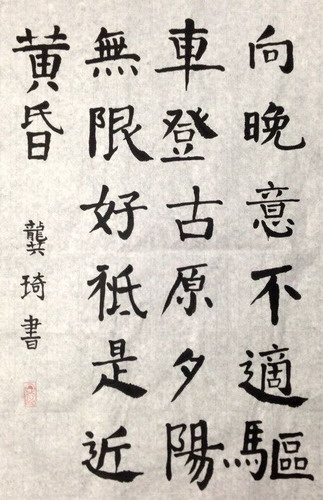 向晚意不適驅
車登古原夕陽
無限好祗是近
黄昏
龔琦書